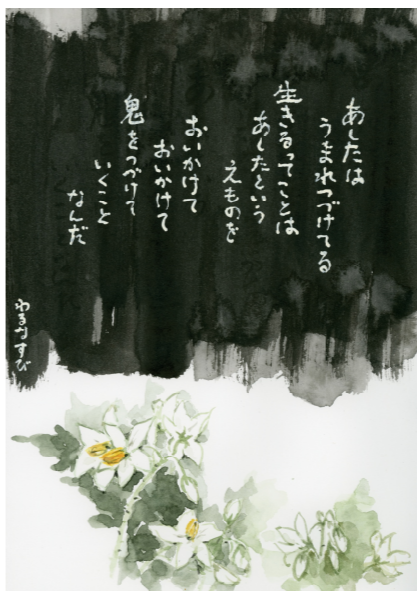 あしたは
うまれつづけてる
生きるってことは
あしたという
えものを
おいかけて
おいかけて
鬼をつづけて
いくこと
なんだ
わるなすび